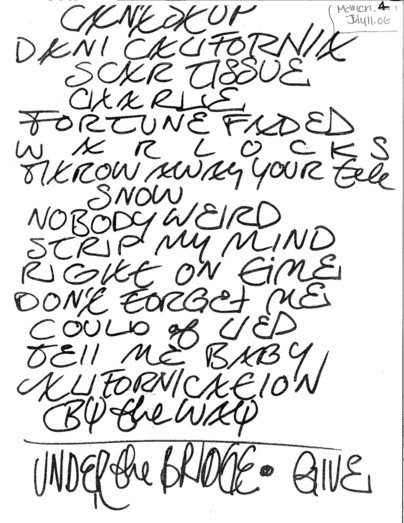 4
July 11.06
DANI CALIFORNIA
SCAR TISSUE
CHARLIE
FORTUNE FADED
WARLOCKS
THROW AWAY YOUR tele
SNOW
NOBODY WEIRD
STRIP MY MIND
RIGHT ON TIME
DON'T FORGET ME
COULD of LIED
TELL ME BABY
CALIFORNICATION
BY the WAY
UNDER the BRIDGE • GIVE